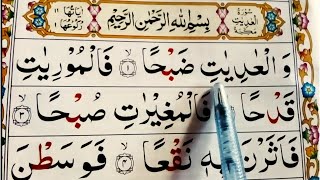 سُورَةُ الْعٰدِيٰتِ مَكِّيَّةٌ
بِسْمِ اللّٰهِ الرَّحْمٰنِ الرَّحِيْمِ
اٰيَاتُهَا ١١
رُكُوْعُهَا ١
وَالْعٰدِيٰتِ ضَبْحًا ۙ‏﴿۱﴾ فَالْمُوْرِيٰتِ
قَدْحًا ۙ‏﴿۲﴾ فَالْمُغِيْرٰتِ صُبْحًا ۙ‏﴿۳﴾
فَاَثَرْنَ بِهٖ نَقْعًا ۙ‏﴿۴﴾ فَوَسَطْنَ